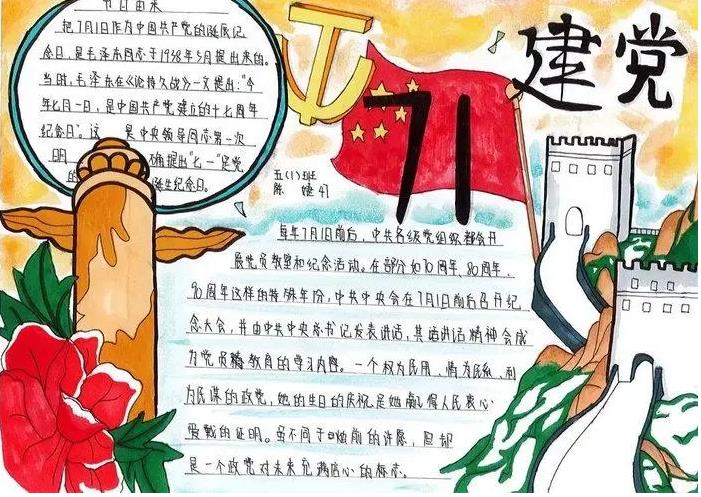 节日由来
把7月1日作为中国共产党的诞辰纪
念日,是毛泽东同志于1938年5月提出来的。
当时,毛泽东在《论持久战》一文提出:“今
年七月一日,是中国共产党建立的十七周年
纪念日”。这 是中央领导同志第一次
明 确提出“七一”是党
的 诞生纪念日。
71
建党
五(1)班
陈 婕 41
每年7月1日前后,中共各级党组织都会开
展党员教塑和纪念活动。在部分如70周年、80周年、
90周年这样的特殊年份,中共中央会在7月1日前后召开纪
念大会,并由中共中央总书记发表讲话,其语讲话精神会成
为党员 教育的学习内容。一个权为民用、情为民系、利
为民谋的政党,她的生日的庆祝是她 得人民衷心
爱戴的证明。虽不同于 前的许愿,但却
是一个政党对未来充满信心的标志。